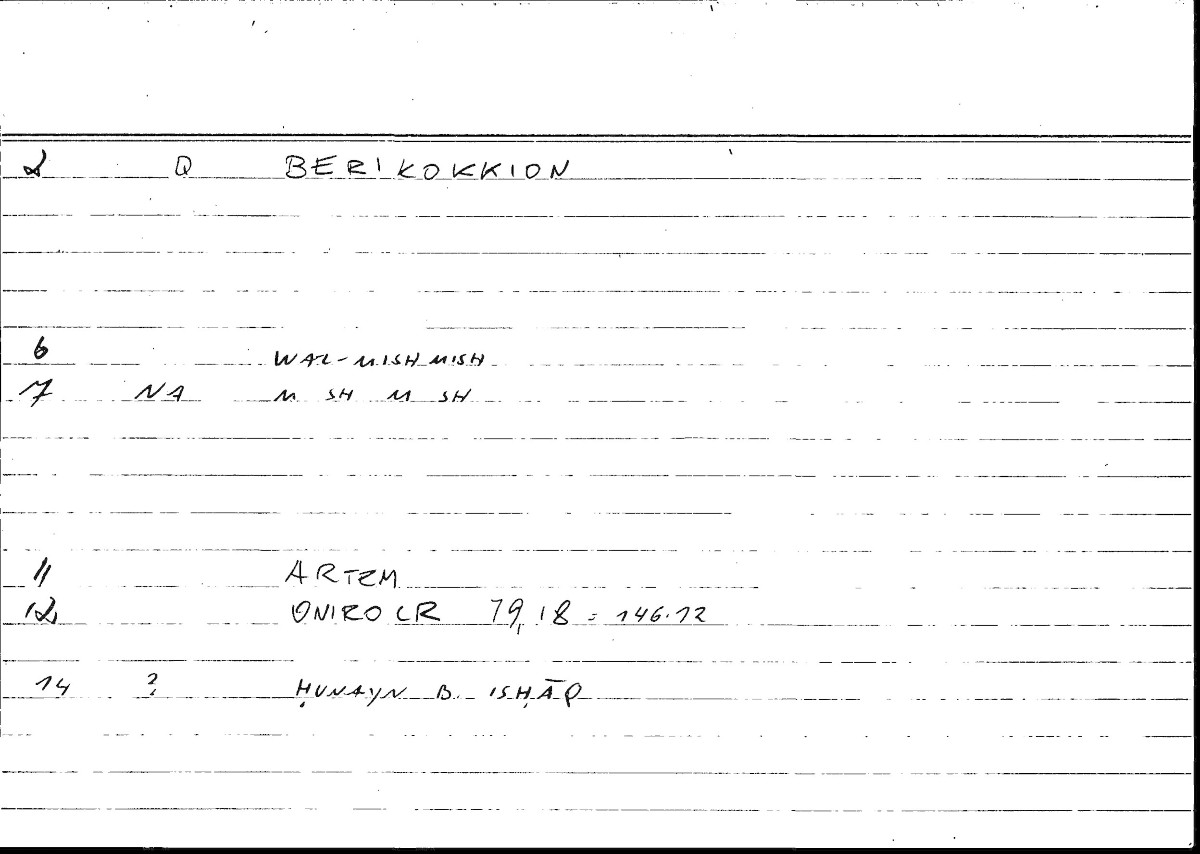 2 Q BERIKOKKION
6 WAL-MISHMISH
7 NA M SH M SH
11 ARTEM
12 ONIROCR 79,18 = 146.12
14 ? ḤUNAYN B. ISḤĀQ